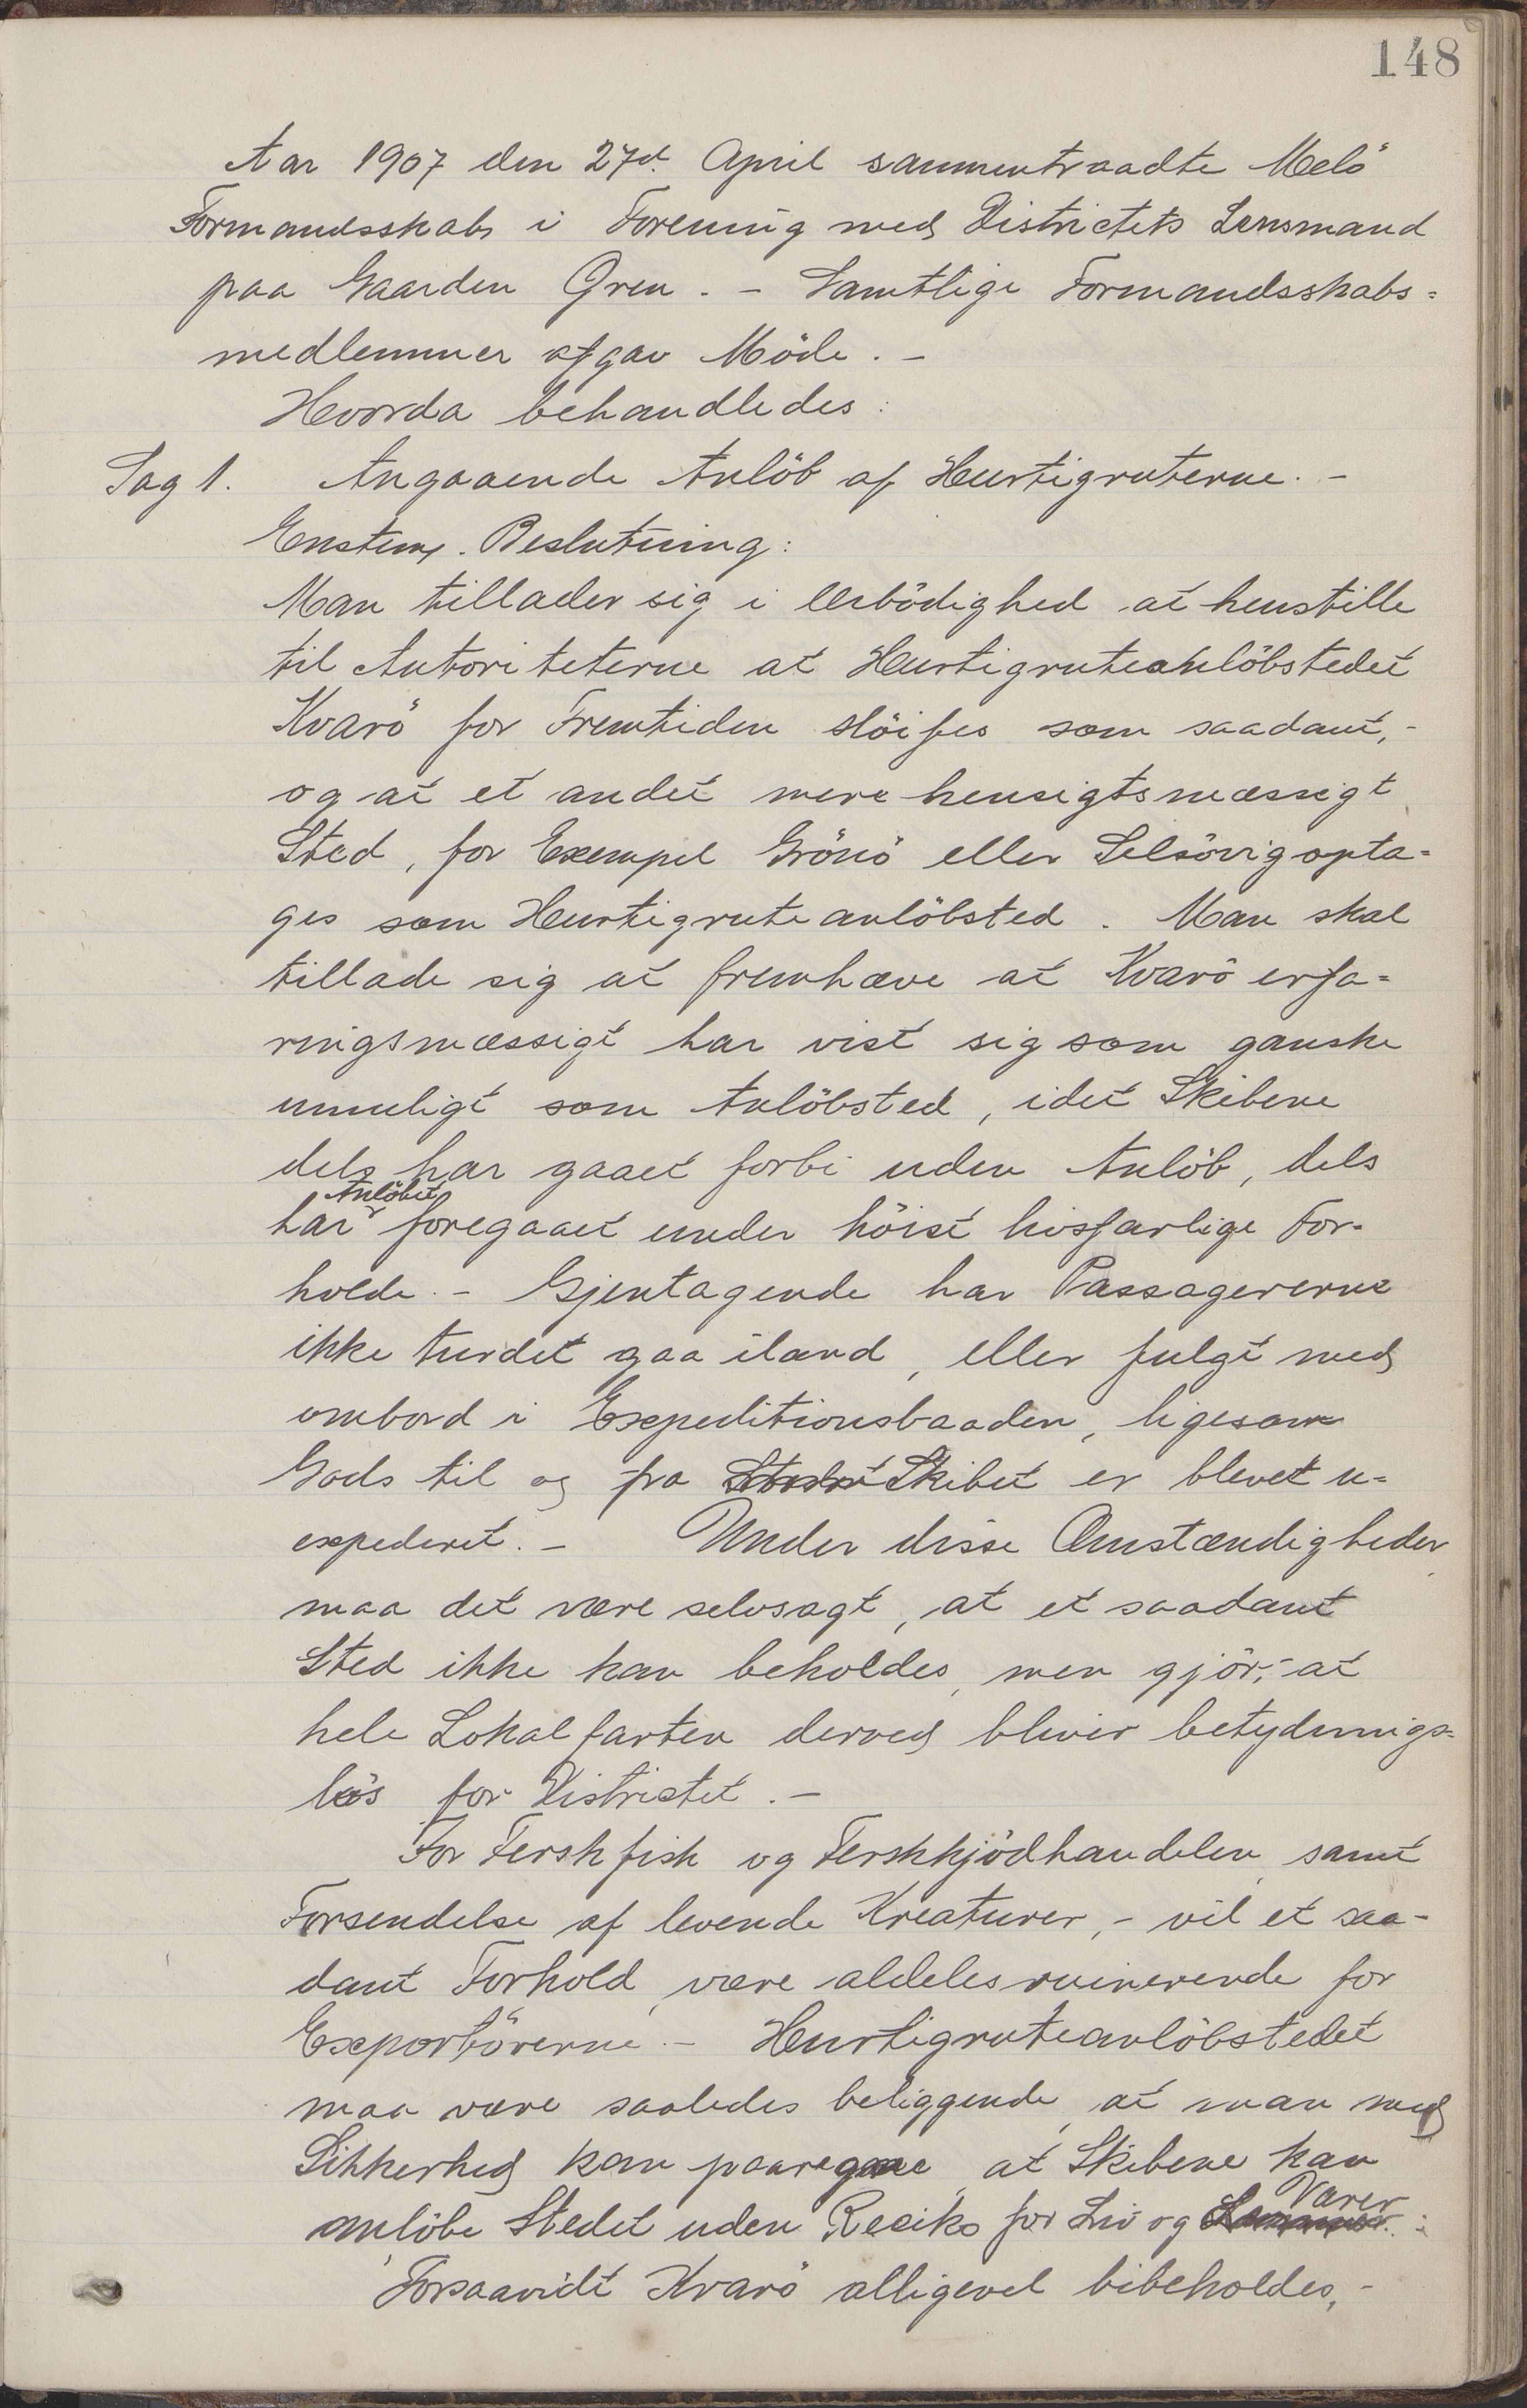 148
Aar 1907 den 27d. April sammentraadte Melö
Formandsskab i Forening med Districtets Lensmand
paa Gaarden Gren. - Samtlige Formandsskabs=
medlemmer afgav Möde. -
Hvorda behandledes:
Sag 1. Angaaende Anlöb af Hurtigruterne. -
Enstem. Beslutning:
Man tillader sig i Ærbödighed at henstille
til Autoriteterne at Hurtigruteanlöbstedet
Kvarö for Fremtiden slöifes som saadant, -
og at et andet mere hensigtsmæssigt
Sted, for Exempel Grönö eller Selsövig opta=
ges som Hurtigruteanlöbsted. Man skal
tillade sig at fremhæve at Kvarö erfa=
ringsmæssigt har vist sig som ganske
umuligt som Anlöbsted, idet Skibene
dels har gaaet forbi uden Anlöb, dels
har Anlöbet foregaaet under höist livsfarlige For=
holde. - Gjentagende har Passagererne
ikke turdet gaa iland, eller fulgt med
ombord i Expeditionsbaaden, ligesom
Gods til og fra Skibet er blevet u=
expederet. - Under disse Omstændigheder
maa det være selvsagt, at et saadant
Sted ikke kan beholdes, men gjör, at
hele Lokalfarten derved bliver betydnings=
lös for Districtet. -
For Ferskfisk og Ferskkjödhandelen, samt
Forsendelse af levende Kreaturer, - vil et saa=
dant Forhold være aldeles ruinerende for
Exportörerne. - Hurtigruteanlöbstedet
maa være saaledes beliggende, at man med
Sikkerhed kan paaregne, at Skibene kan
anlöbe Stedet uden Reciko for Liv og Varer
Forsaavidt Kvarö alligevel bibeholdes, -